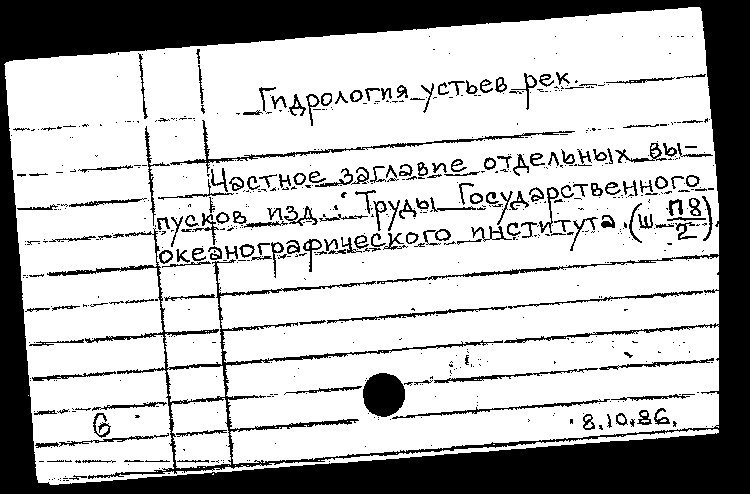 Гидрология устьев рек.
Частное заглавие отдельных вы-
пусков изд.: Труды Государственного
океанографического института. (Ш П8/2)
6 8.10.86.